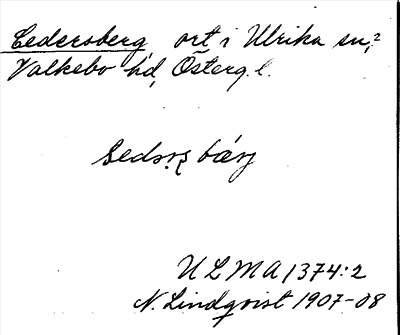 Cedersberg, ort i Ulrika sn,?
Valkebo hd, Österg. l.
sedərʂ bærj
ULMA 1374:2
N. Lindqvist 1907-08